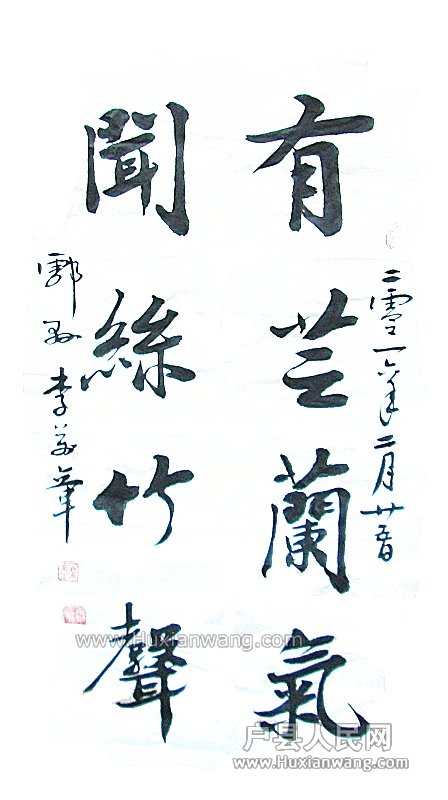 有芸蘭氣
聞絲竹聲
二零一六年二月廿五日
鄠邑李
www.Huxianwang.com
户县人民网
www.Huxianwang.com